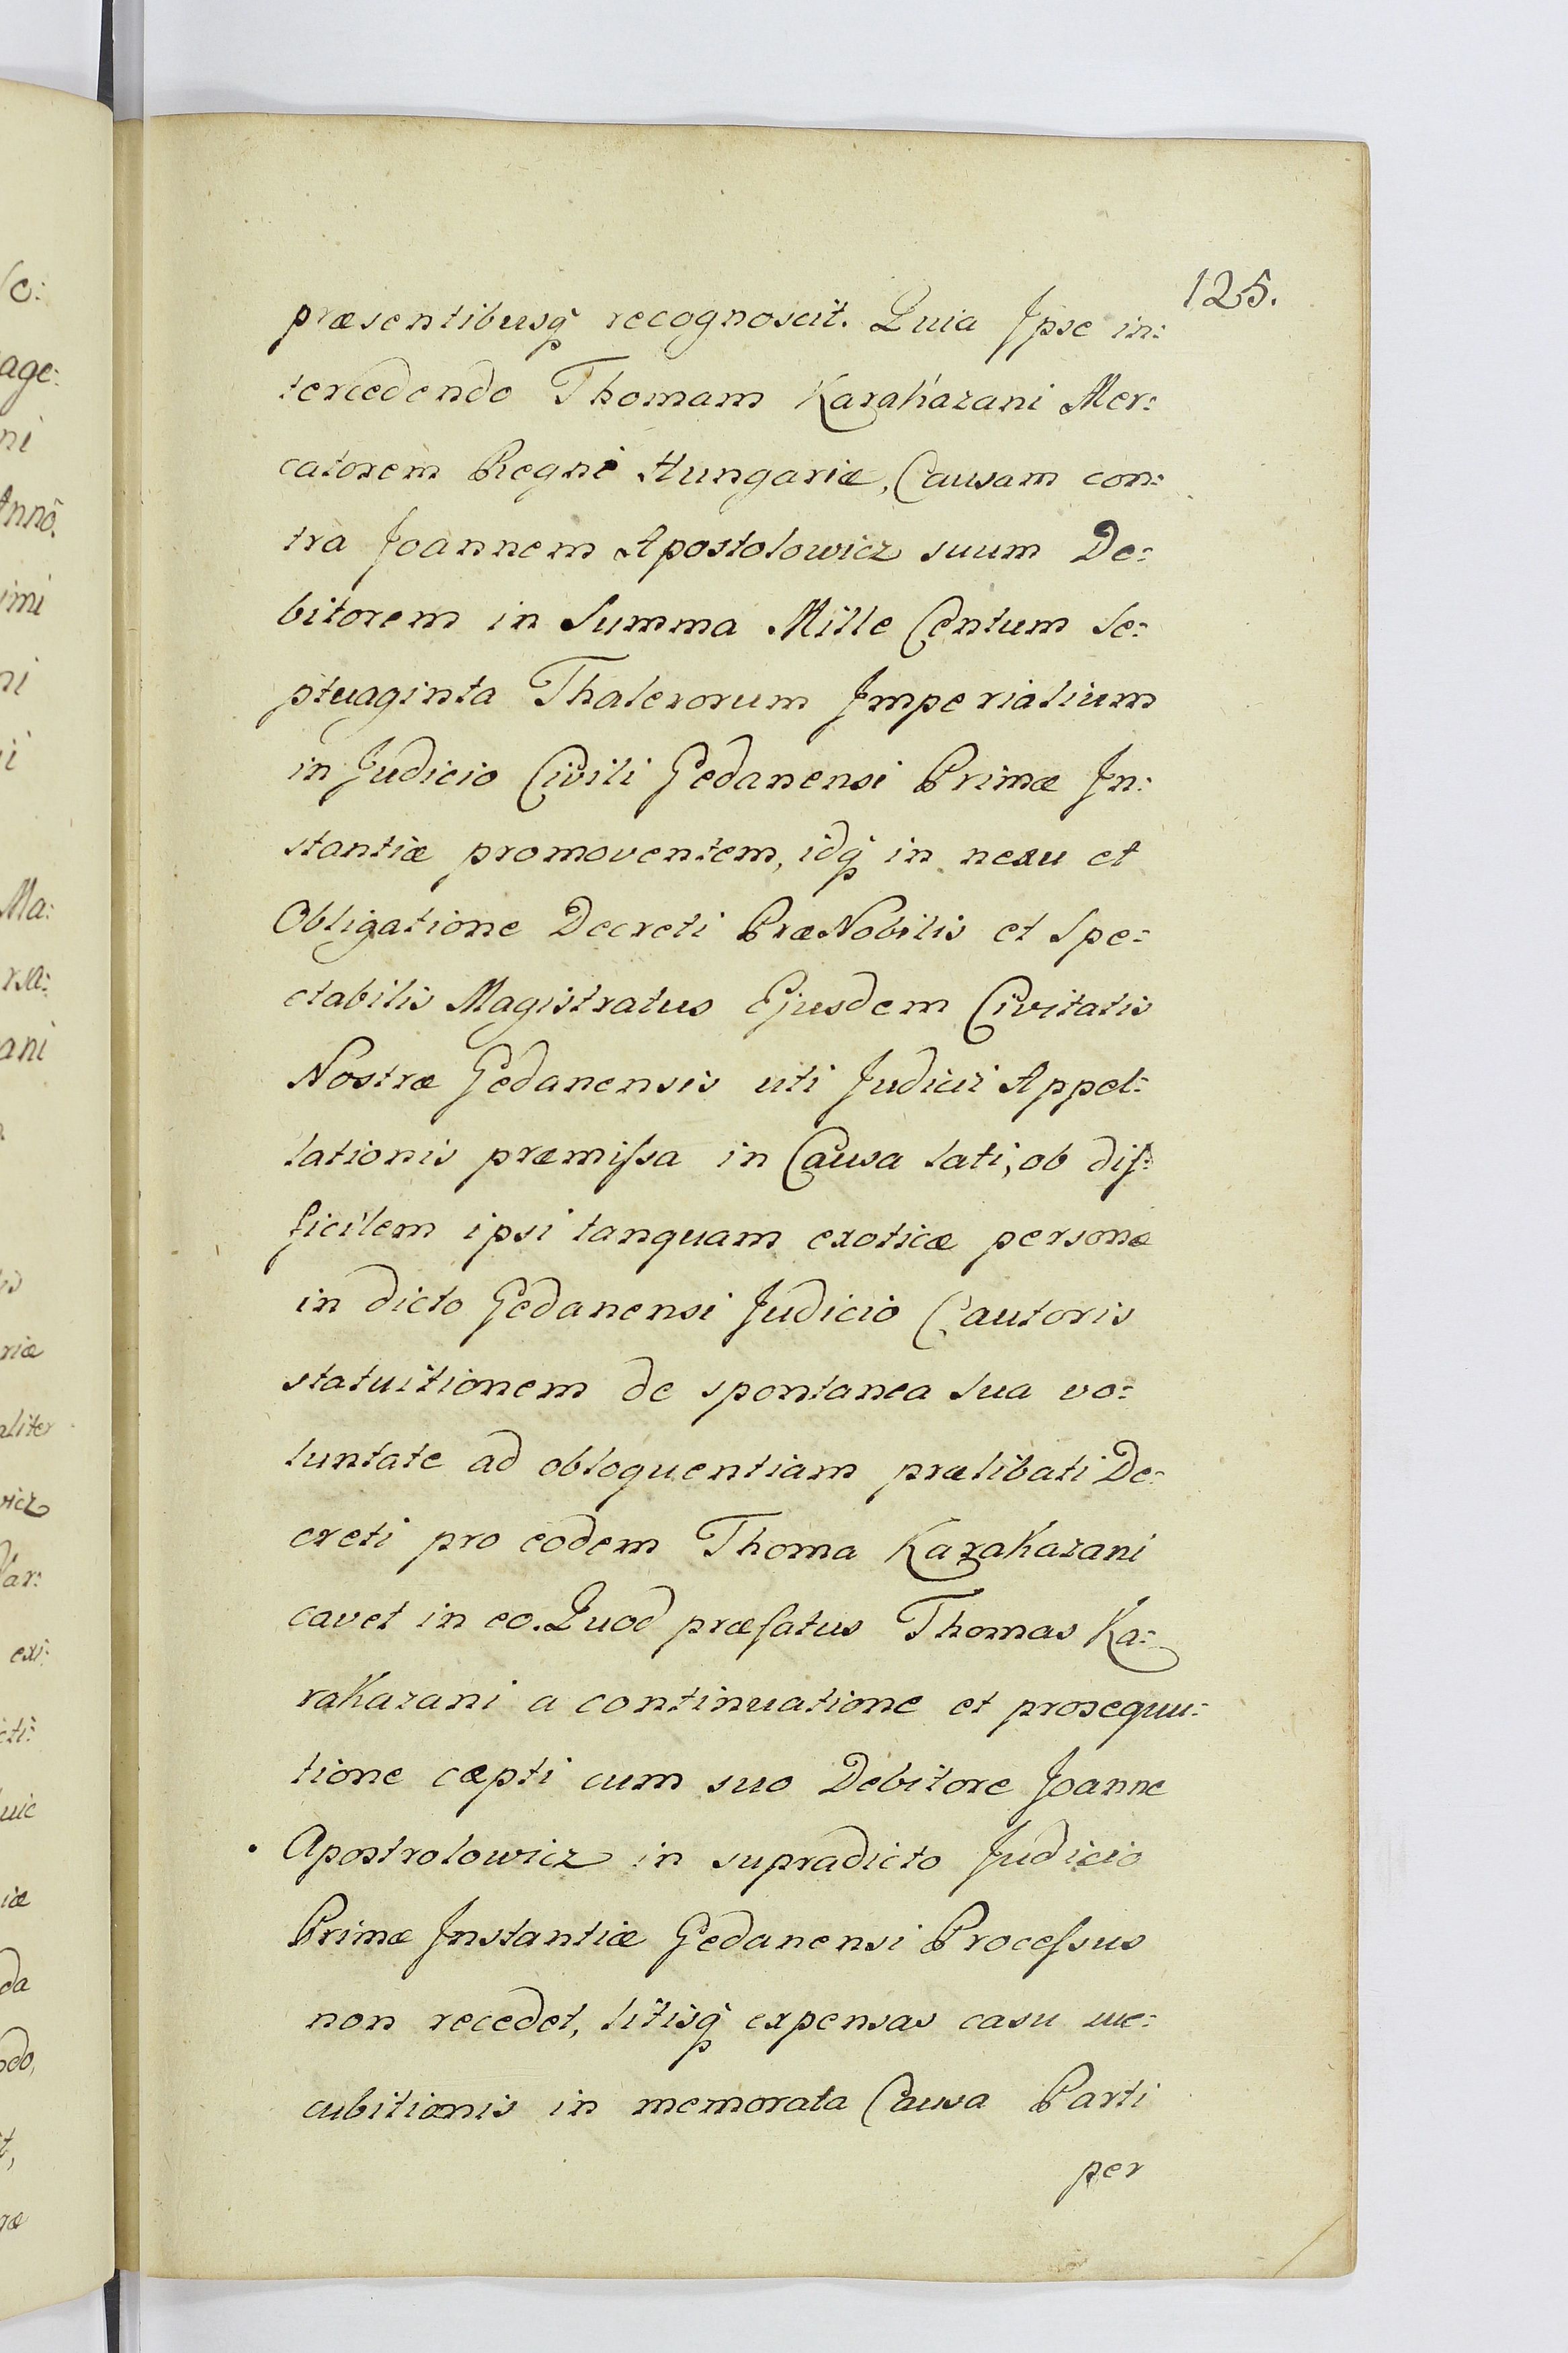 125.
præsentibusq̃ recognoscit. Quia Ipse in:
tercedendo Thomam Karakazani Mer:
catorem Regni Hungariæ, Causam con:
tra Joannem Apostolowicz suum De:
bitorem in Summa Mille Centum Se:
ptuaginta Thalerorum Imperialium
in Judicio Civili Gedanensi Primæ In:
stantiæ promoventem, idq̃ in nexu et
Obligatione Decreti PræNobilis et Spe:
ctabilis Magistratus Ejusdem Civitatis
Nostræ Gedanensis uti Judicii Appel:
lationis præmiſsa in Causa lati, ob dif:
ficilem ipsi tanquam exoticæ personæ
in dicto Gedanensi Judicio Cautoris
statuitionem de spontanea sua vo:
luntate ad obloquentiam prælibati De:
creti pro eodem Thoma Karakazani
cavet in eo. Quod præfatus Thomas Ka:
rakazani a continuatione et prosequu:
tione cæpti cum suo Debitore Joanne
Apostrolowicz in supradicto Judicio
Primæ Instantiæ Gedanensi Proceſsus
non recedet, litisq̃ expensas casu
cubitionis in memorata Causa Parti
per
age:
ni
Annô.
imi
ni
Ma:
rsa:
ani
riæ
aliter
wicz
exi: